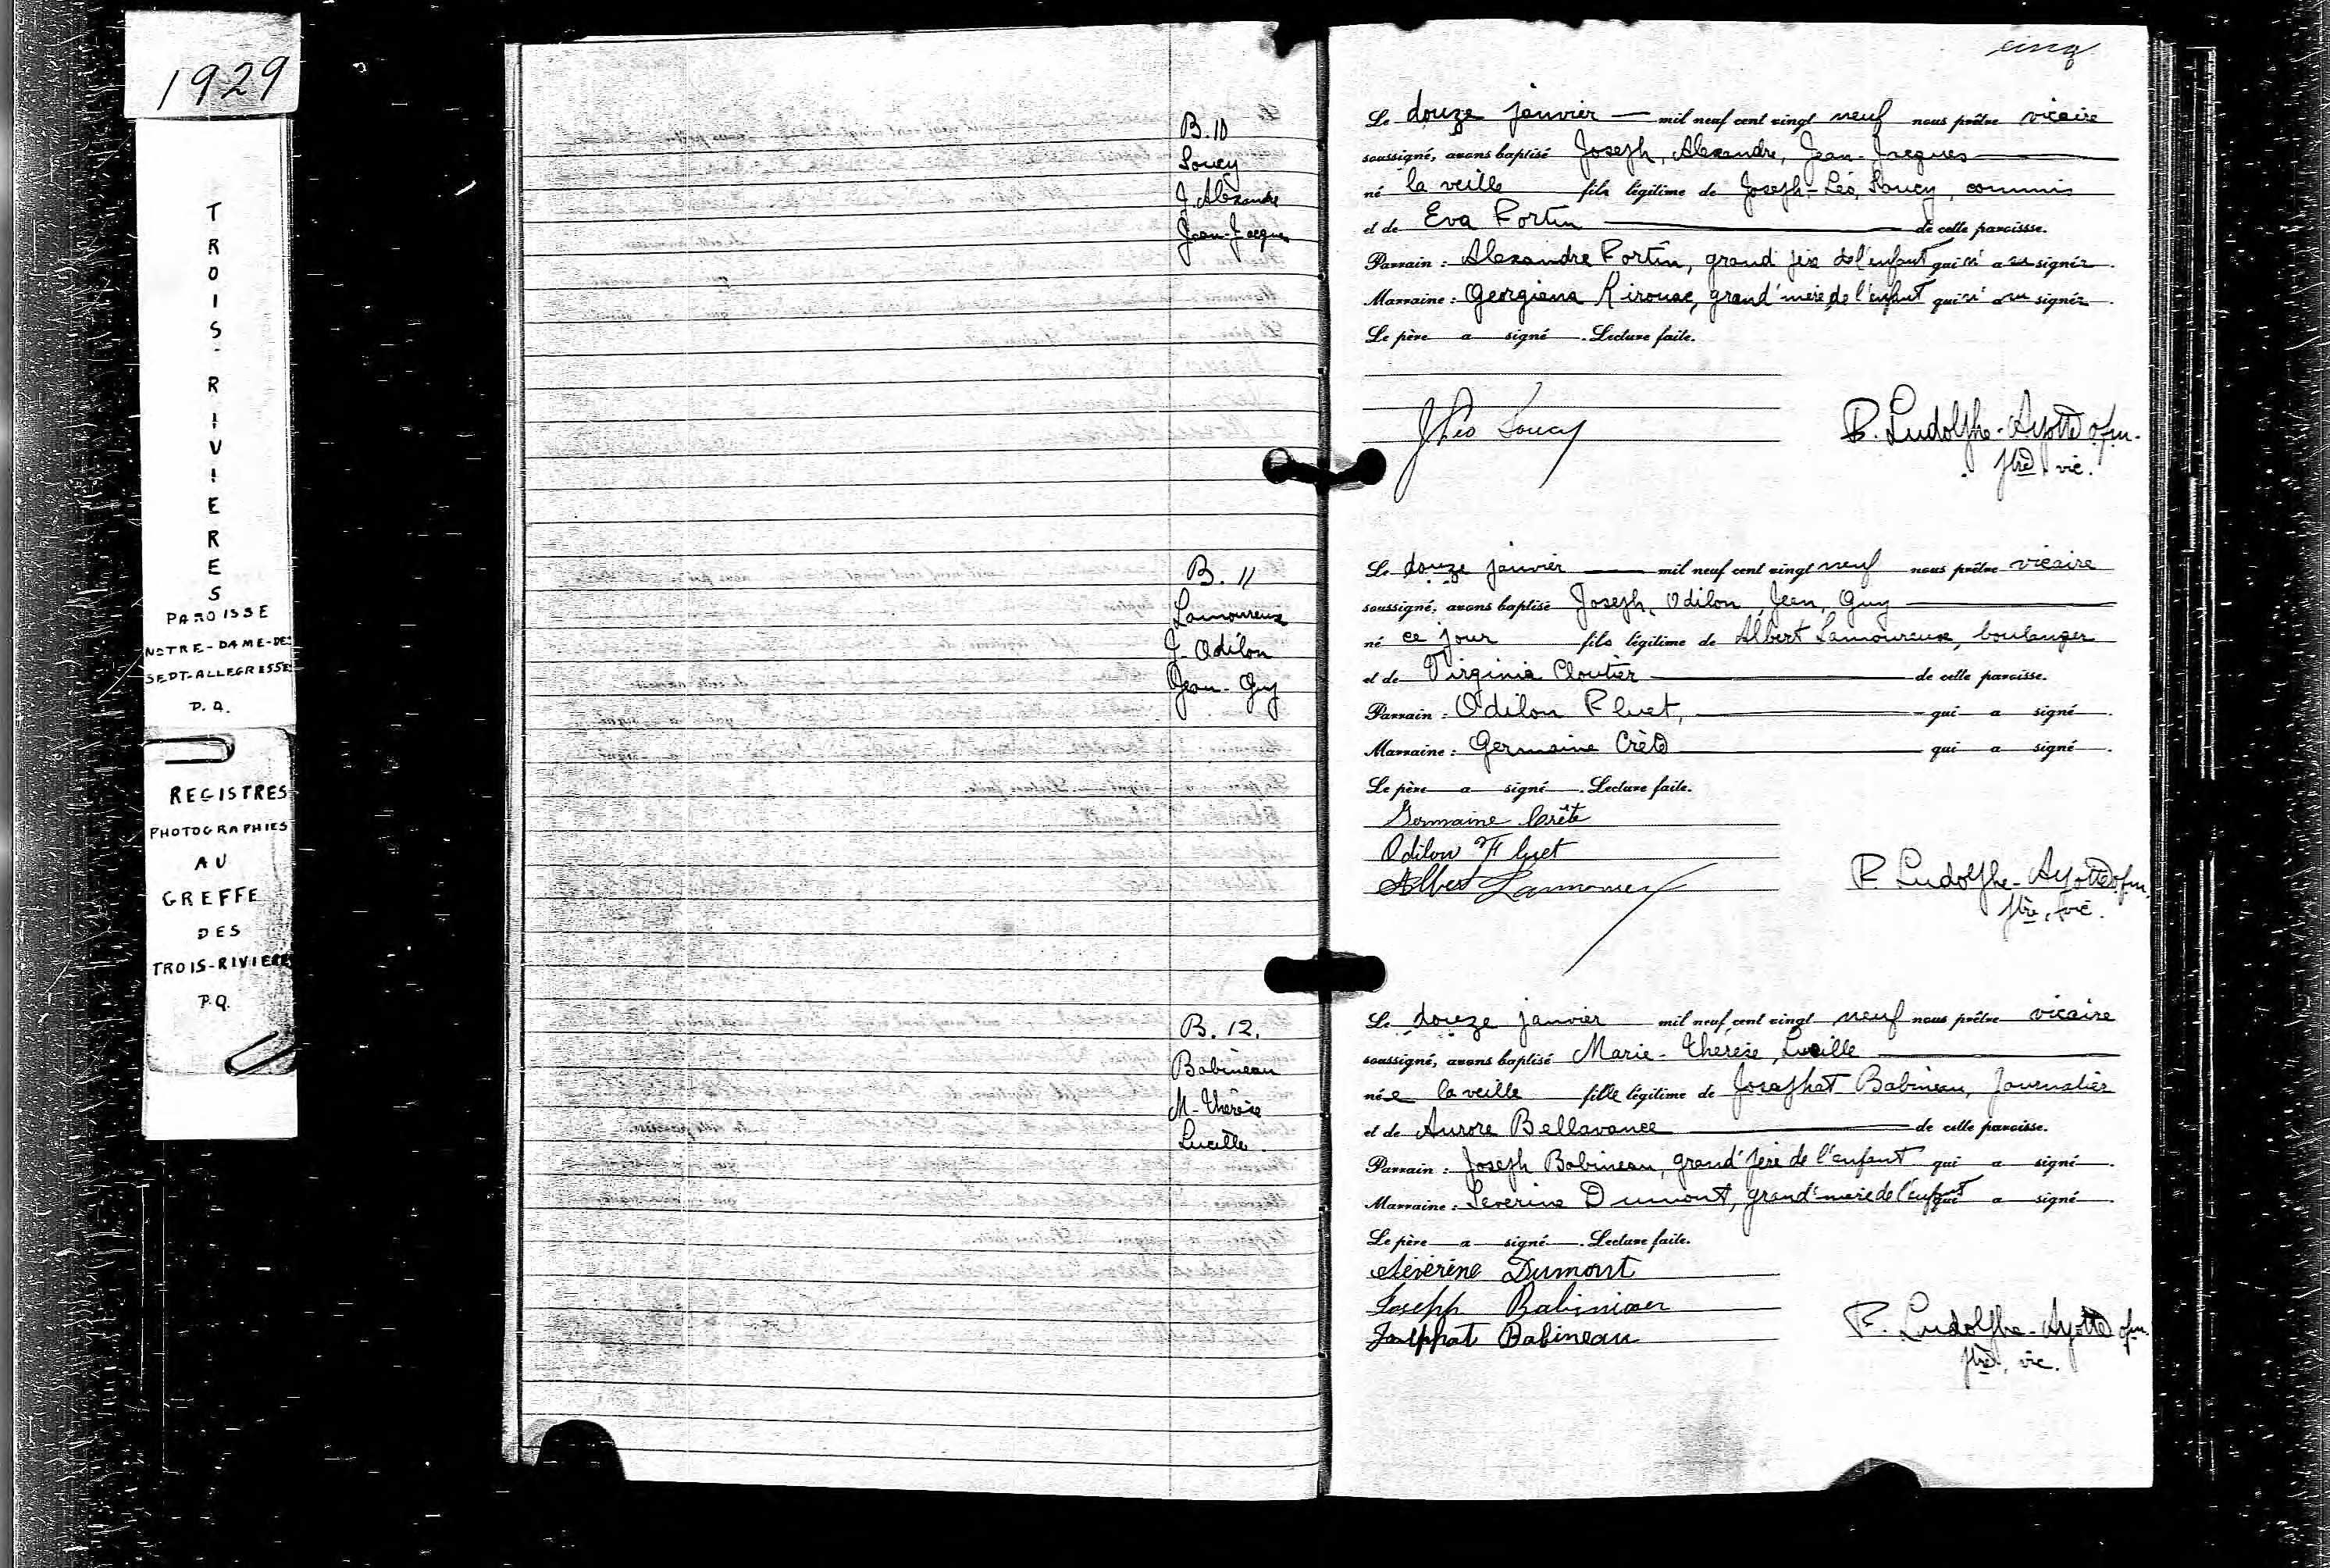 1929
TROIS-RIVIERES
PAROISSE
NOTRE-DAME-DES
SEPT-ALLEGRESSES
P.Q.
REGISTRES
PHOTOGRAPHIES
AU
GREFFE
DES
TROIS-RIVIERES
P.Q.
cinq
B. 10
Soucy
J. Alexandre
Jean-Jacques
Le douze janvier — mil neuf cent vingt neuf nous prêtre vicaire
soussigné, avons baptisé Joseph, Alexandre, Jean-Jacques
né la veille fils légitime de Joseph-Léo Soucy, commis
et de Eva Fortin de cette paroisse.
Parrain : Alexandre Fortin, grand père de l'enfant qui n'a su signer.
Marraine : Georgiana Kirouac, grand'mère de l'enfant qui n'a su signer.
Le père a signé. Lecture faite.
J Léo Soucy
F. Ludolphe-Ayotte ofm.
ptre vic.
B. 11
Lamoureux
J. Odilon
Jean-Guy
Le douze janvier — mil neuf cent vingt neuf nous prêtre vicaire
soussigné, avons baptisé Joseph, Odilon, Jean, Guy
né ce jour fils légitime de Albert Lamoureux, boulanger
et de Virginia Cloutier de cette paroisse.
Parrain : Odilon Fluet, qui a signé.
Marraine : Germaine Crête qui a signé.
Le père a signé. Lecture faite.
Germaine Crête
Odilon Fluet
Albert Lamoureux
F. Ludolphe-Ayotte ofm.
ptre, vic.
B. 12.
Babineau
M-Thérèse
Lucille.
Le douze janvier mil neuf cent vingt neuf nous prêtre vicaire
soussigné, avons baptisé Marie-Thérèse, Lucille
née la veille fille légitime de Josaphat Babineau, Journalier
et de Aurore Bellavance de cette paroisse.
Parrain : Joseph Babineau, grand'père de l'enfant qui a signé.
Marraine : Severine Dumont, grand'mère de l'enfant qui a signé.
Le père a signé. Lecture faite.
Séverine Dumont
Joseph Babineau
Josephat Babineau
F. Ludolphe-Ayotte ofm.
ptre, vic.